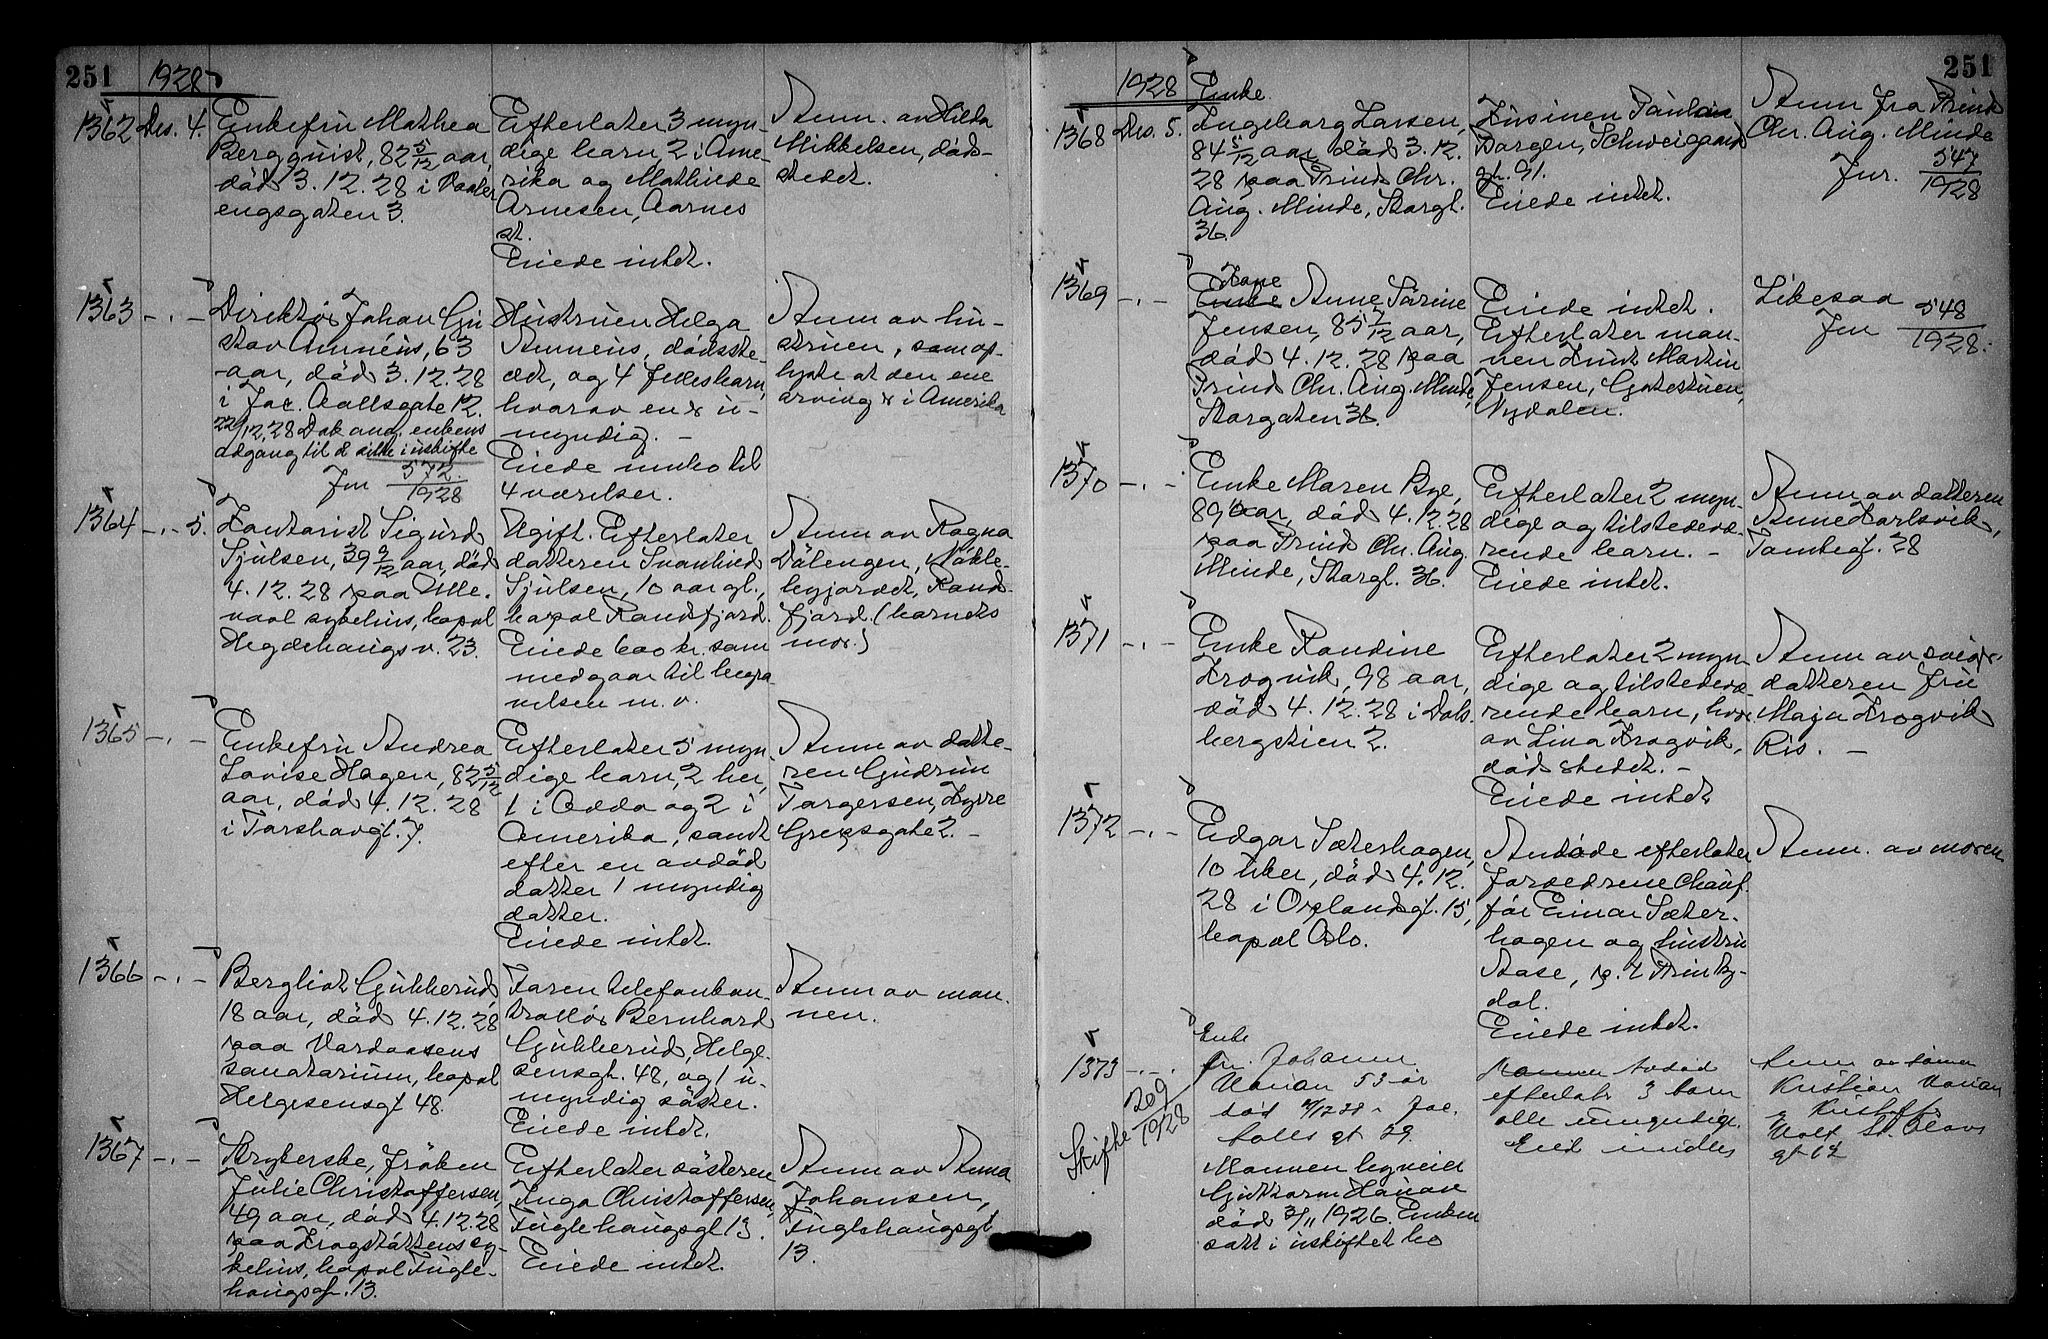 251
1928
1362 Des. 4. Enkefru Mathea
Bergquist, 82 5/12 aar,
död 3.12.28 i Vaaler
engsgaten 3.
Efterlater 3 myn-
dige barn, 2 i Ame-
rika og Mathilde
Arnesen, Aarnes
st.
Eiede intet.
Anm. av Hilda
Mikkelsen, döds-
stedet.
1363 -.- Direktör Johan Gu
stav Amnéus, 63
aar, död 3.12.28
i Jac. Aallsgate 12.
22/12.28 Dok ang. enkens
adgang til å sitte i uskifte
Jnr 572/1928
Hustruen Helga
Amneus, dödsste-
det, og 4 fellesbarn,
hvorav en er u-
myndig. -
Eiede innbo til
4 værelser.
Anm av hu-
struen, som op-
lyste at den ene
arving er i Amerika
1364 -.- 5. Kontorist Sigurd
Sjulsen, 39 9/12 aar, död
4.12.28 paa Ulle-
vaal sykehus, bopæl
Hegdehaugsv. 23.
Ugift. Efterlater
datteren Svanhild
Sjulsen, 10 aar gl.,
bopæl Randsfjord.
Eiede 600 kr. som
medgaar til begra-
velsen m.v.
Anm av Ragna
Dålengen, Nökle-
byjordet, Rands-
fjord. (barnets
mor.)
1365 -.- Enkefru Andrea
Lovise Hagen, 82 5/12
aar, död 4.12.28
i Torshovgt. 7.
Efterlater 5 myn-
dige barn, 2 her,
1 i Odda og 2 i
Amerika, samt
efter en avdöd
datter 1 myndig
datter.
Eiede intet.
Anm av datte-
ren Gudrun
Torgersen, Sverre
Grepsgate 2. -
1366 -.- Bergliot Gukkerud,
18 aar, död 4.12.28
paa Vardaasens
sanatorium, bopæl
Helgesensgt 48.
Faren telefonkon-
trollör Bernhard
Gukkerud, Helge-
sensgt. 48, og 1 u-
myndig söster.
Eiede intet.
Anm av man-
nen.
1367 -.- Stryterske, fröken
Julie Christoffersen,
49 aar, död 4.12.28
paa Krogstöttens sy-
kehus, bopæl Fugle-
haugsgt. 13.
Efterlater sösteren
Inga Christoffersen,
Fuglehaugsgt 13.
Eiede intet.
Anm av Anna
Johansen,
Fuglehaugsgt
13.
251
1928
1368 Des. 5. Enke
Ingeborg Larsen,
84 5/12 aar, död 3.12.
28 paa Prinds Chr.
Aug. Minde, Storgt.
36.
Kusinen Pauline
Borgen, Schweigaards
gt. 91.
Eiede intet.
Anm fra Prinds
Chr. Aug. Minde
Jnr. 547/1928
1369 -.- Kone
Enke Anne Sörine
Jensen, 85 7/12 aar,
död 4.12.28 paa
Prinds Chr. Aug. Minde,
Storgaten 36.
Eiede intet.
Efterlater man-
nen Knut Martin
Jensen, Gjötestuen,
Nydalen.
Likesaa
Jnr 548/1928.
1370 -.- Enke Maren Bye,
89 aar, död 4.12.28
paa Prinds Chr. Aug.
Minde, Storgt. 36.
Efterlater 2 myn-
dige og tilstedevæ-
rende barn. -
Eiede intet.
Anm av datteren
Anne Karlsvik,
Tomtegt. 28
1371 -.- Enke Randine
Krogvik, 98 aar,
död 4.12.28 i Dals-
bergstien 2.
Efterlater 2 myn-
dige og tilstedevæ-
rende barn, hvor-
av Lina Krogvik,
dödsstedet. -
Eiede intet
Anm av sviger-
datteren fru
Maja Krogvik
Ris. -
1372 -.- Edgar Sæterhagen,
10 uker, död 4.12.
28 i Oplandsgt. 15,
bopæl Oslo.
Avdöde efterlater
foreldrene chauf-
för Einar Sæter-
hagen og hustru
Aase, p. t. Trinby-
dal.
Eiede intet.
Anm. av moren
1373 -.- Enke
fru Johanne
Hauan 53 år
död 4/12 28 i Jac.
Aalls gt 29.
Mannen byveier
Guttorm Hauan
död 3/11 1926. Enken
satt i uskiftet bo
Skifte 209/1928
Mannen Avdöd
efterlatr 3 barn
alle umyndige.
Eied midler
Anm av sönnen
Kristian Hauan
Kristoffer
St. Olavs
gt 62